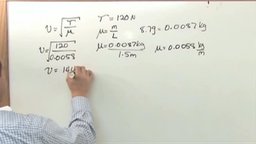 v = √(T/μ) T = 120N
μ = m/L 8.7g = 0.0087kg
v = √(120/0.0058) μ = 0.0087kg/1.5m μ = 0.0058 kg/m
v = 14